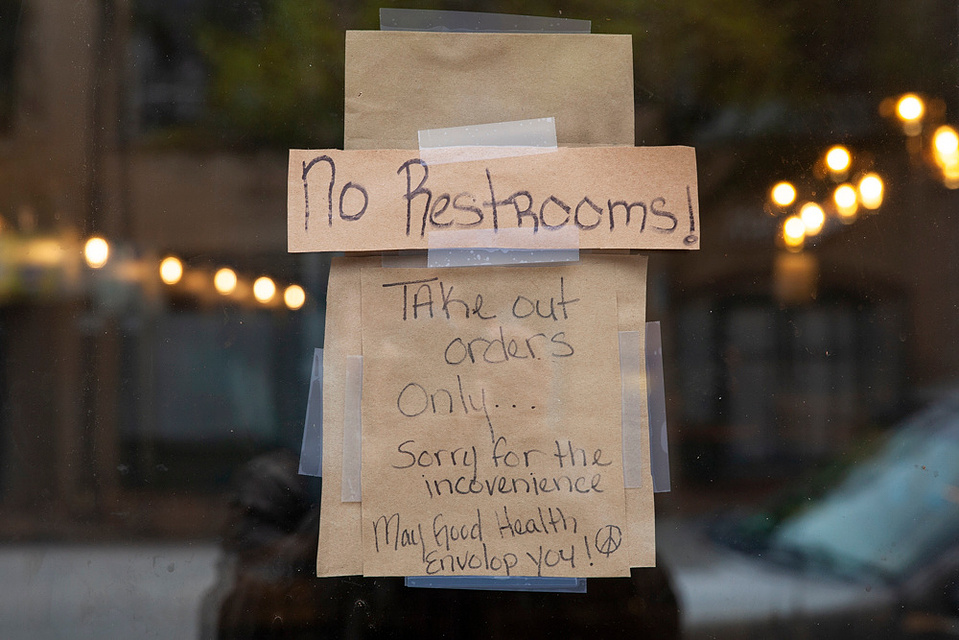 No Restrooms!
TAke out
orders
Only...
Sorry for the
incovenience
May Good Health
Envolop you!